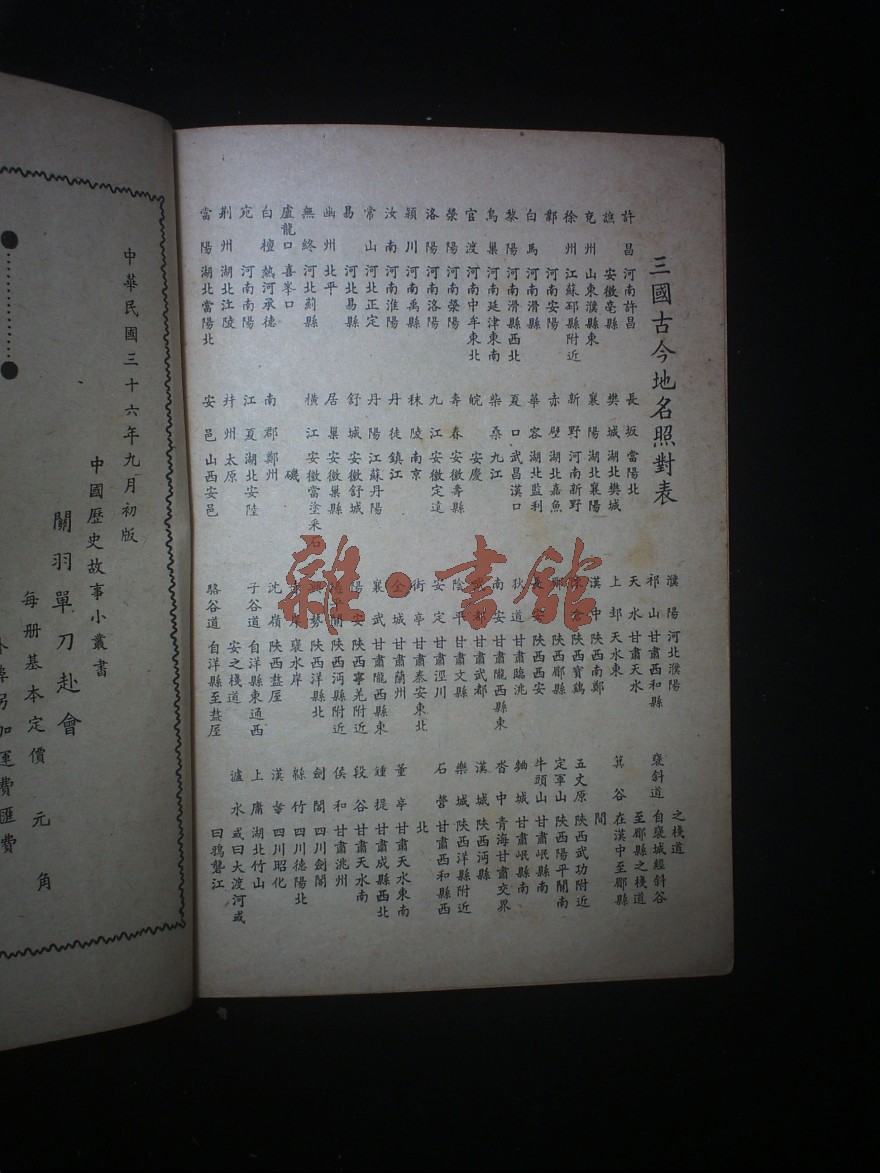 三國古今地名照對表
許昌 河南許昌
譙 安徽亳縣
兗州 山東濮縣東
徐州 江蘇邳縣附近
鄴 河南安陽
白馬 河南滑縣
黎陽 河南滑縣西北
烏巢 河南延津東南
官渡 河南中牟東北
滎陽 河南滎陽
洛陽 河南洛陽
潁川 河南禹縣
汝南 河南淮陽
常山 河北正定
易 河北易縣
幽州 北平
無終 河北薊縣
盧龍口 喜峯口
白檀 熱河承德
宛 河南南陽
荆州 湖北江陵
當陽 湖北當陽北
長坂 當陽北
樊城 湖北樊城
襄陽 湖北襄陽
新野 河南新野
赤壁 湖北嘉魚
華容 湖北監利
夏口 武昌漢口
柴桑 九江
皖 安慶
壽春 安徽壽縣
九江 安徽定遠
秣陵 南京
丹徒 鎮江
丹陽 江蘇丹陽
舒城 安徽舒城
居巢 安徽巢縣
橫江 安徽當塗采石
磯
南郡 鄭州
江夏 湖北安陸
幷州 太原
安邑 山西安邑
濮陽 河北濮陽
祁山 甘肅西和縣
天水 甘肅天水
上邽 天水東
漢中 陝西南鄭
陳倉 陝西寶鷄
郿 陝西郿縣
長安 陝西西安
狄道 甘肅臨洮
南安 甘肅隴西縣東
武都 甘肅武都
陰平 甘肅文縣
安定 甘肅涇川
街亭 甘肅泰安東北
金城 甘肅蘭州
襄武 甘肅隴西縣東
陽安 陝西寧羌附近
陽平關 陝西沔縣附近
興勢 陝西洋縣北
赤岸 褒水岸
沈嶺 陝西盩厔
子谷道 自洋縣東通西
安之棧道
駱谷道 自洋縣至盩厔
之棧道
褒斜道 自褒城經斜谷
至郿縣之棧道
箕谷 在漢中至郿縣
間
五丈原 陝西武功附近
定軍山 陝西陽平關南
牛頭山 甘肅岷縣南
麴城 甘肅岷縣南
沓中 青海甘肅交界
漢城 陝西沔縣
樂城 陝西洋縣附近
石營 甘肅西和縣西
北
董亭 甘肅天水東南
鍾提 甘肅成縣西北
段谷 甘肅天水南
侯和 甘肅洮州
劍閣 四川劍閣
緜竹 四川德陽北
漢夀 四川昭化
上庸 湖北竹山
瀘水 或曰大渡河或
曰鴉礱江
中華民國三十六年九月初版
中國歷史故事小叢書
關羽單刀赴會
每册基本定價 元 角
外埠另加運費匯費
雜·書館